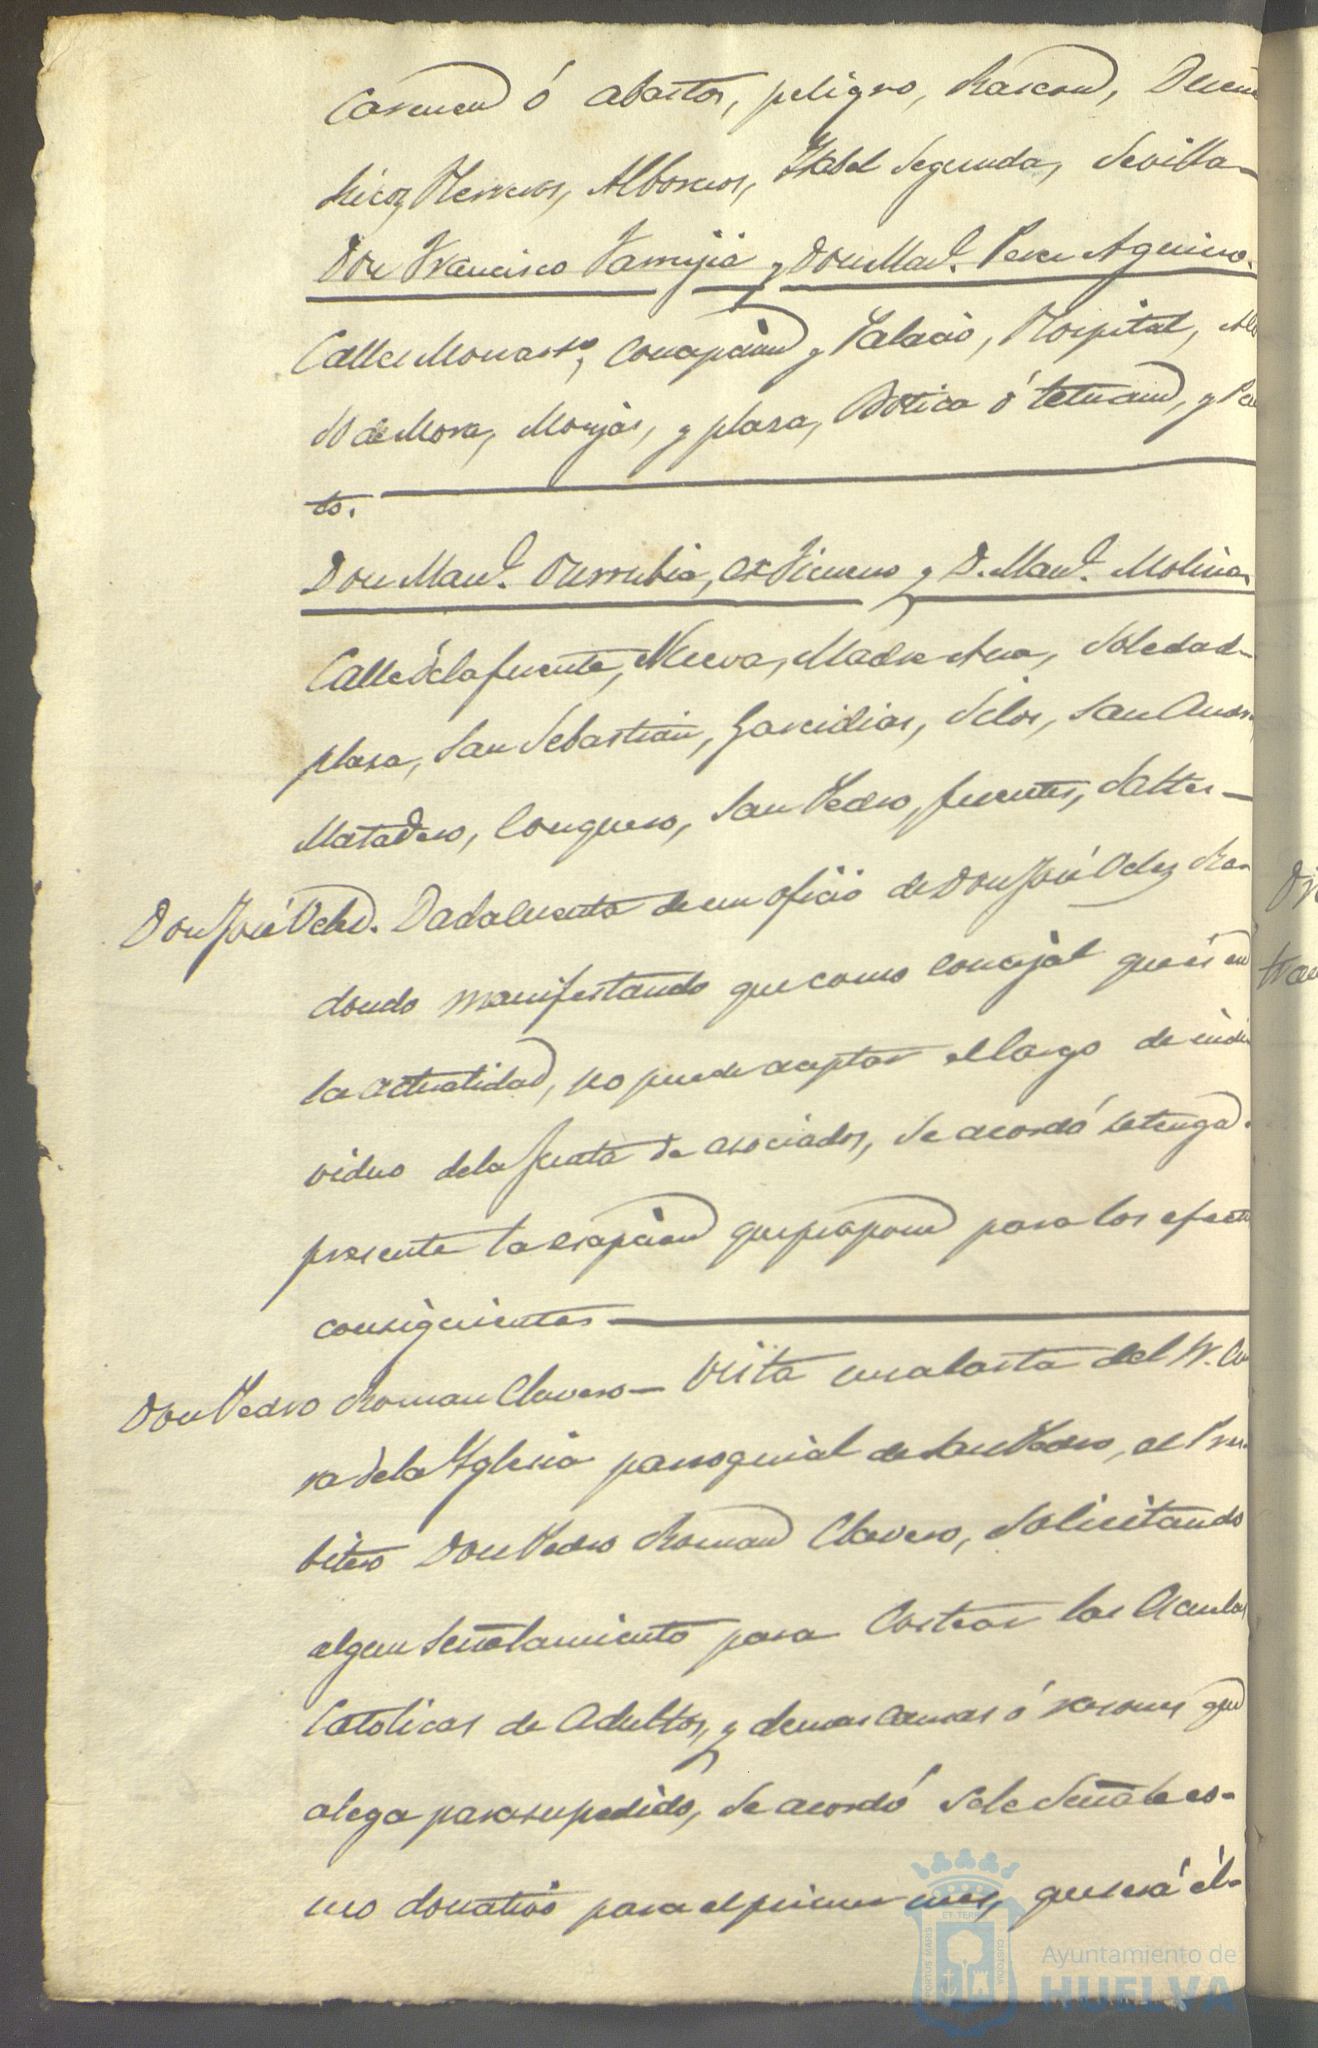 Carmen ó abastos, peligro, Rascon,
ricos, Herreros, Albornos, Isabel Segunda, Sevilla
Don Francisco Garrijia y Don Man.l Perez Aguirre.
Calle Monasterio, Concepcion y Palacio, Hospital,
de Mora, Monjas, y plaza, Botica ó tetuan, y
to.
Don Man.l Rurrubia, y D. Man.l Molina
Calle de la fuente, Nueva, Madre Ana, Soledad
plaza, San Sebastian, Garcidias, Silos, San Andr
Matadero, Conquero, San Pedro, fuentes, Saltes
Don José Velez. Dada cuenta de un oficio de Don José Velez Ra
dondo manifestando que como concejal que és en
la actualidad, no puede aceptar el cargo de indi
viduo de la junta de asociados, se acordó se tenga
presente la escepcion que propone para los efecto
consiguientes
Don Pedro Roman Clavero Vista una carta del Sr. Cu
ra de la Yglesia parroquial de San Pedro, el Pres
bitero Don Pedro Roman Clavero, solicitando
algun señalamiento para costear las Escuelas
Catolicas de Adultos, y demas causas ó razones que
alega para su pedido, se acordó se le señale co-
mo donativo para el primer mes, que será él
PORTUS MARIS ET TERRAE CUSTODIA
Ayuntamiento de
HUELVA